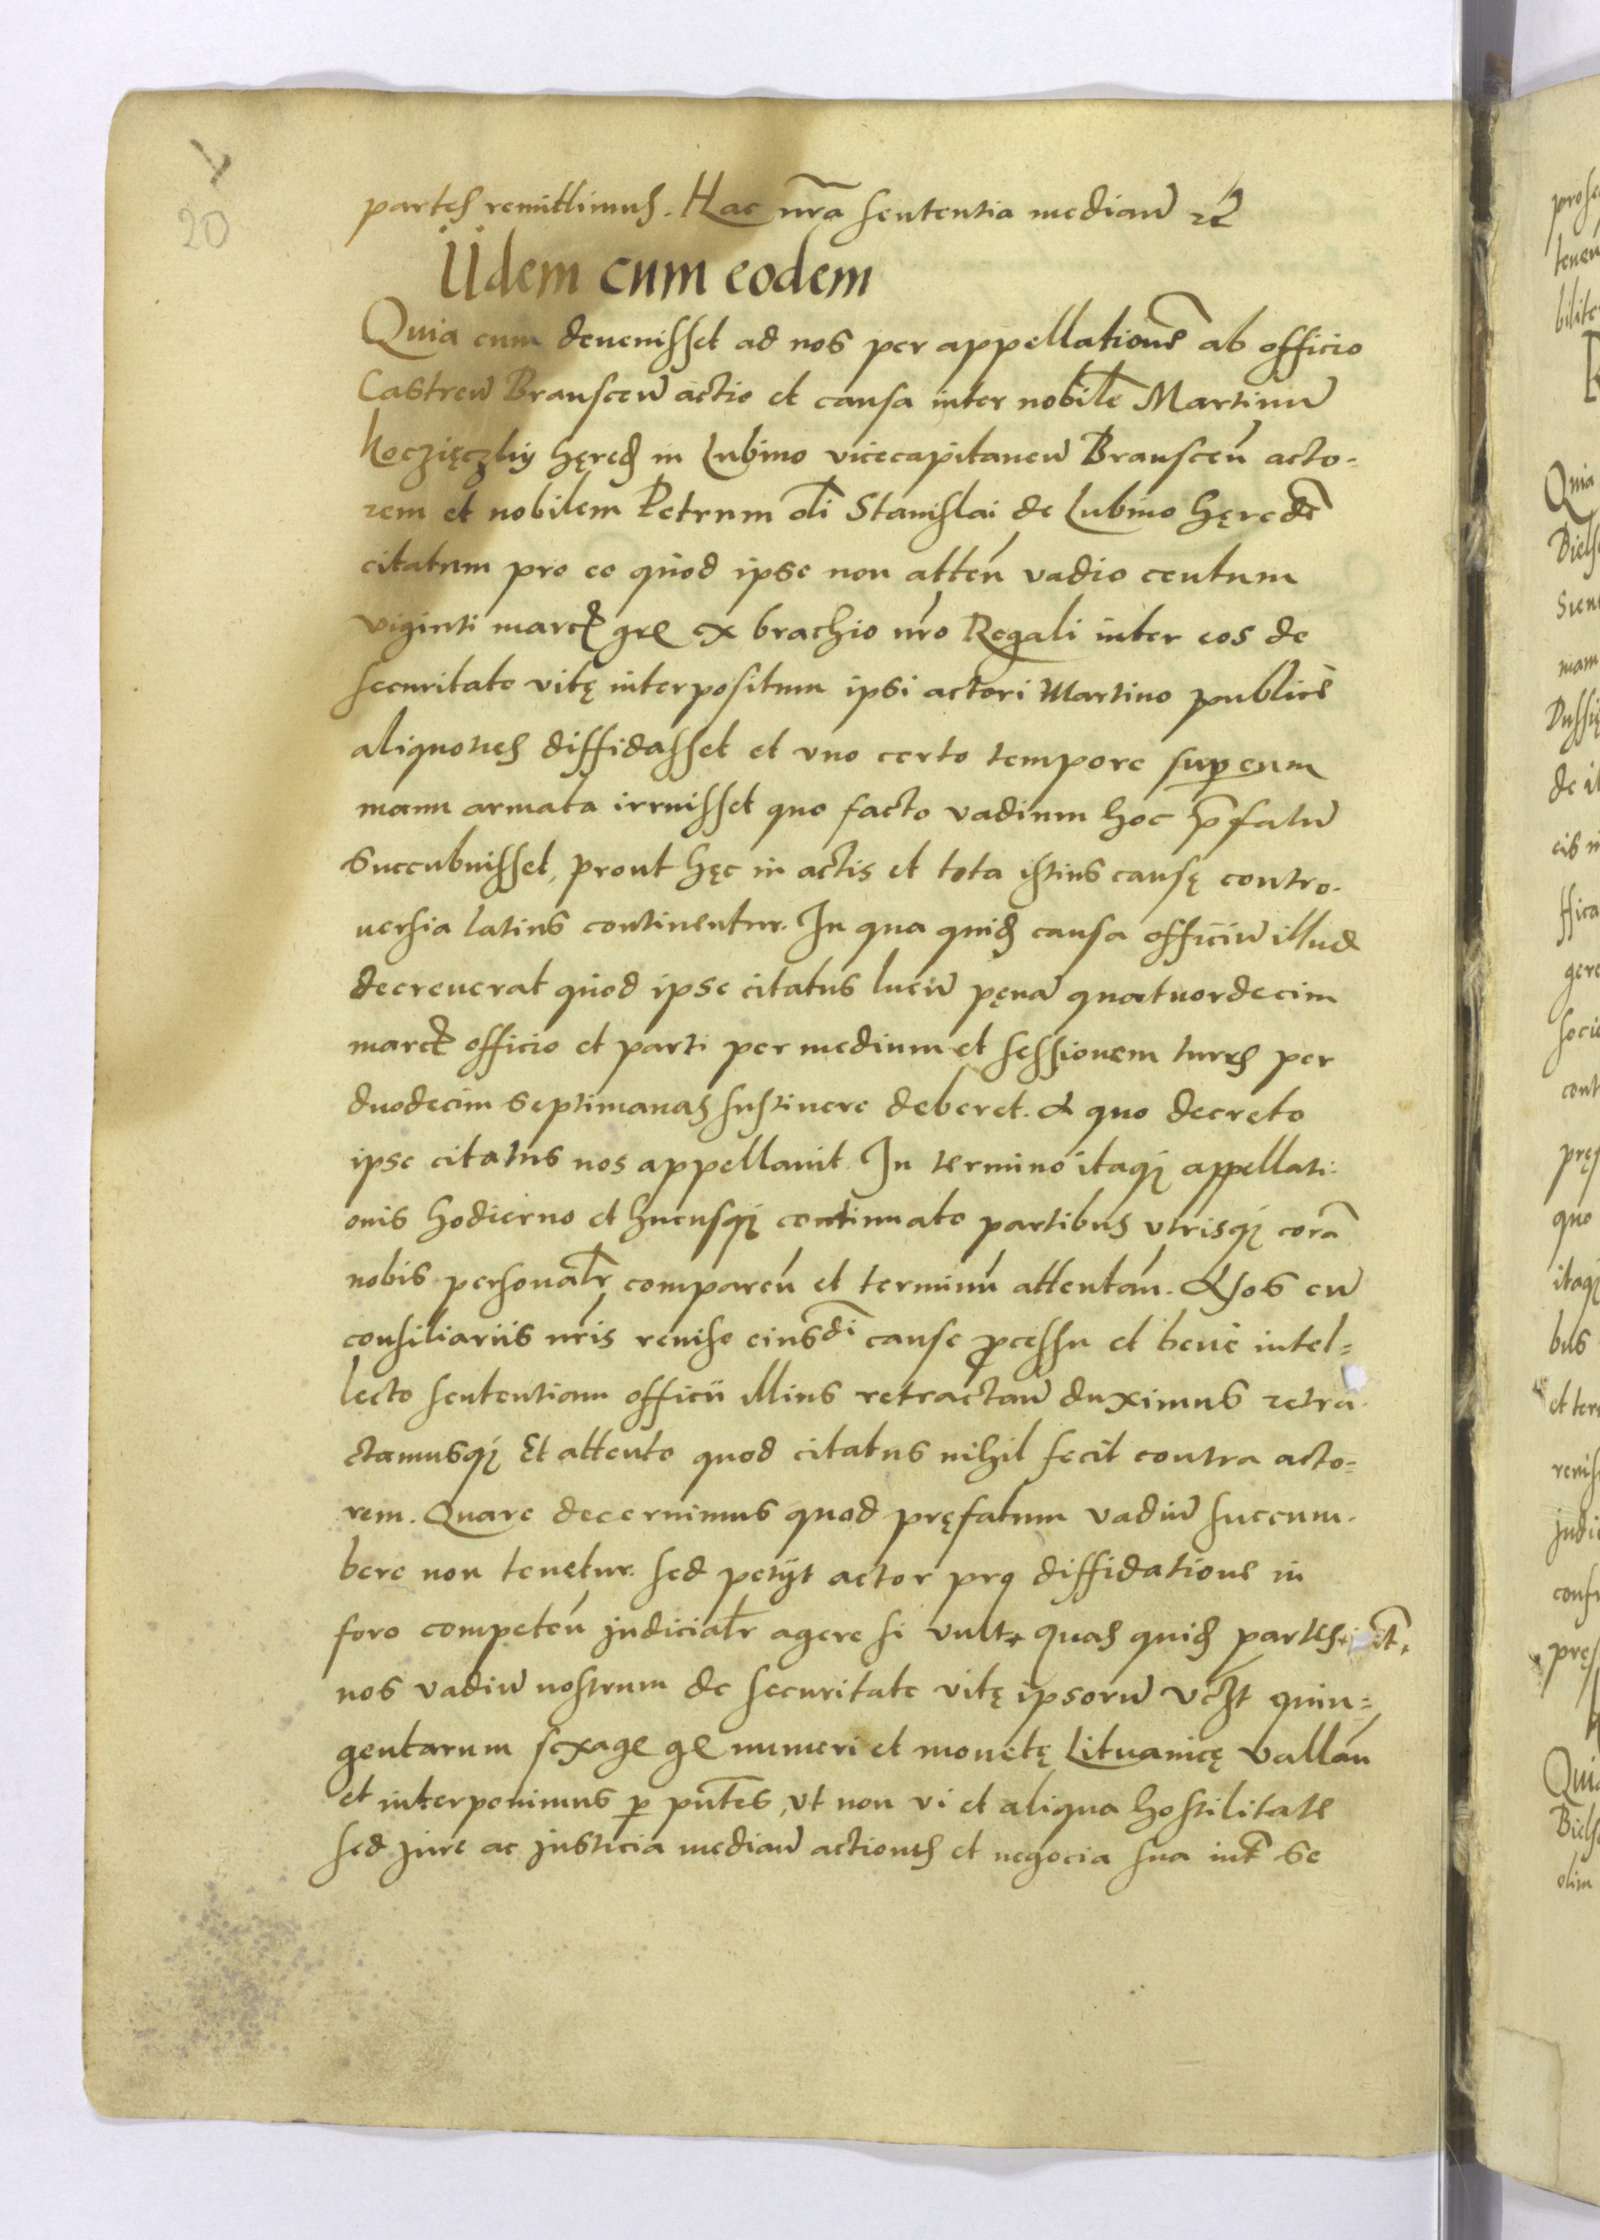 20
partes remittimus. Hac nrã sententia median̄ etc̃
Iidem cum eodem
Quia cum deuenisset ad nos per appellationẽ ab officio
Castren̄ Branscen̄ actio et causa inter nobilẽ Martinũ
hęred in Lubino vicecapitaneũ Branscen̄ acto=
rem et nobilem Petrum oli Stanislai de Lubino hęredẽ
citatum pro eo quod ipse non atten̄ vadio centum
viginti marc̃ gr̃ ex brachio nr̃o Regali inter eos de
securitate vitę interpositum ipsi actori Martino publice
aliquoties diffidasset et vno certo tempore super eum
manu armata irruisset quo facto vadium hoc p̃fatũ
succubuisset, prout hęc in actis et tota istius causę contro-
uersia latius continentur. In qua quid causa officiũ illud
decreuerat quod ipse citatus luen̄ pęnã quatuordecim
marc̃ officio et parti per medium et sessionem turris per
duodecim septimanas sustinere deberet. A quo decreto
ipse citatus nos appellauit. In termino itaq; appellati-
onis hodierno et hucusq; continuato partibus vtrisq; corã
nobis personalr̃ comparen̄ et terminũ attentan̄. Nos cũ
consiliariis nr̃is reuiso eiusdi cause ꝓcessu et bene intel=
lecto sententiam officii illius retractan̄ duximus retra-
ctamusq; Et attento quod citatus nihil fecit contra acto=
rem. Quare decernimus quod pręfatum vadiũ succum-
bere non tenetur. sed actor pro diffidatione in
foro competen̄ judicialr̃ agere si vult quas quid partes
nos vadiũ nostrum de securitate vitę ipsorũ vclt quin=
gentarum sexage gr̃ numeri et monetę Lituanicę vallan̄
et interponimus ꝑ pñtes, vt non vi et aliqua hostilitate
sed jure ac justicia median̄ actiones et negocia sua int̃ se